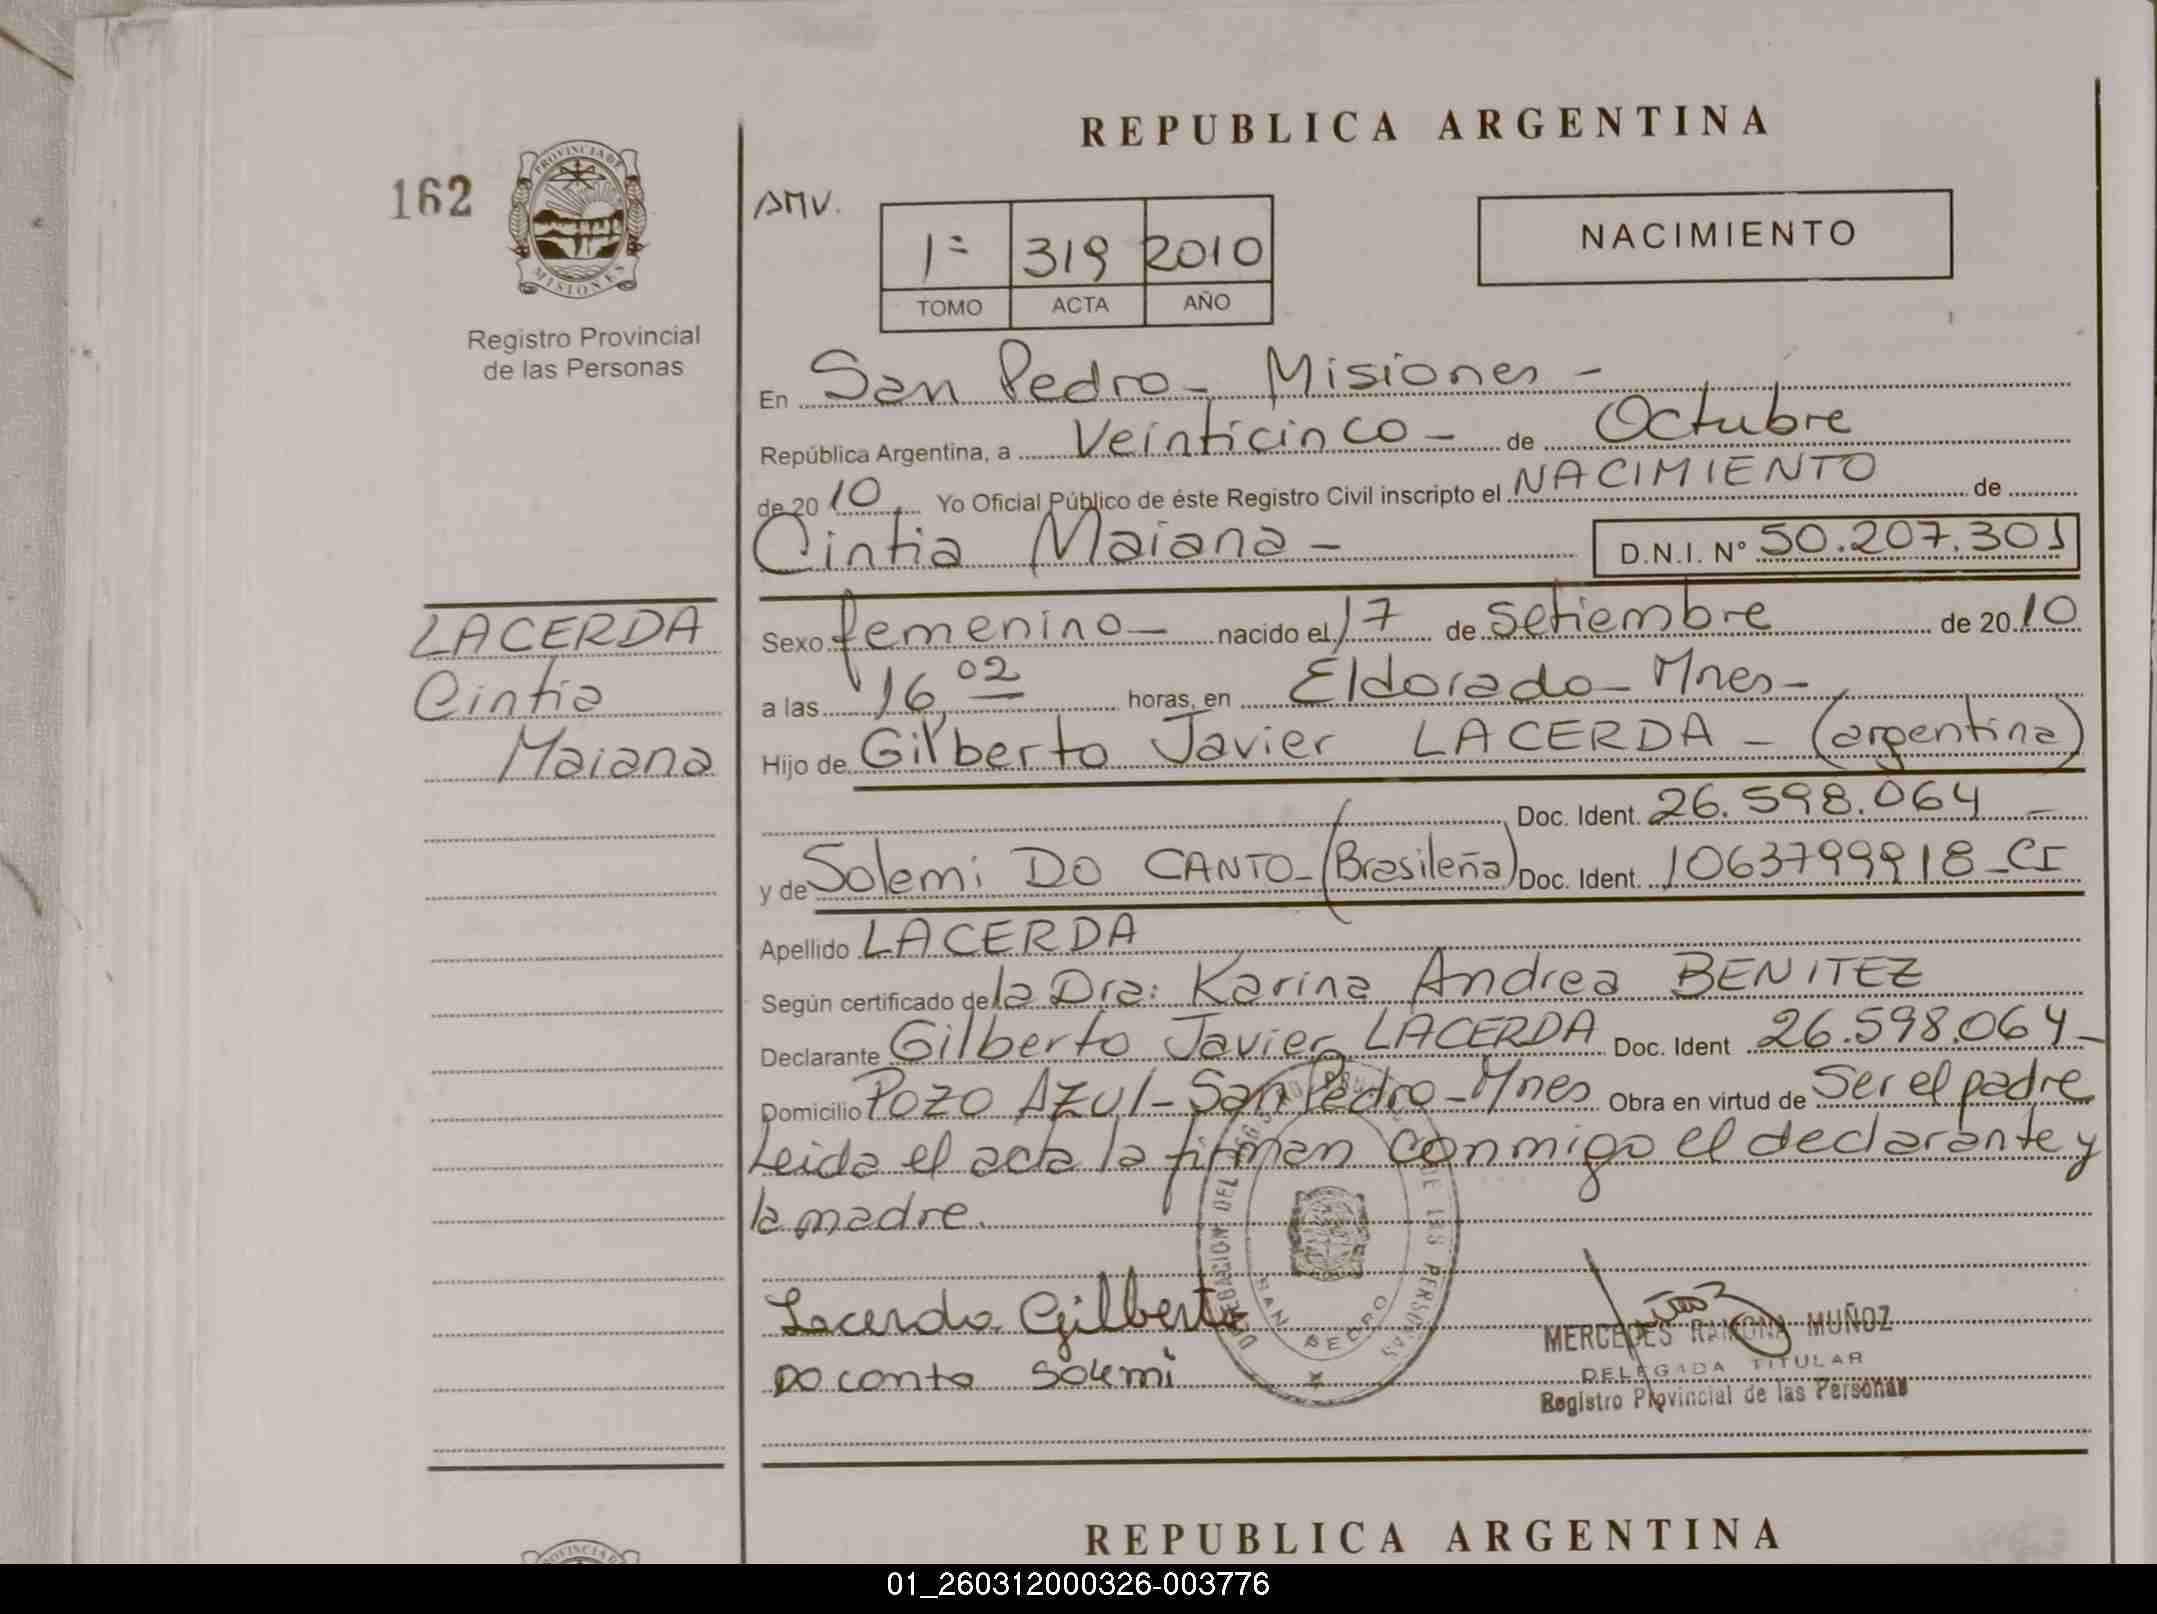 REPUBLICA ARGENTINA
162
PROVINCIA DE
MISIONES
Registro Provincial
de las Personas
AMV.
1º 319 2010
TOMO ACTA AÑO
NACIMIENTO
En San Pedro - Misiones -
República Argentina, a Veinticinco - de Octubre
de 2010 Yo Oficial Público de éste Registro Civil inscripto el NACIMIENTO de
Cintia Maiana - D.N.I. Nº 50.207.301
LACERDA
Cintia
Maiana
Sexo femenino - nacido el 17 de Setiembre de 2010
a las 16 02 horas, en Eldorado - Mnes -
Hijo de Gilberto Javier LACERDA - (argentina)
Doc. Ident. 26.598.064 -
y de Solemi DO CANTO - (Brasileña) Doc. Ident. 1063799918 - CI
Apellido LACERDA
Según certificado de la Dra: Karina Andrea BENITEZ
Declarante Gilberto Javier LACERDA Doc. Ident 26.598.064 -
Domicilio POZO AZUL - San Pedro - Mnes Obra en virtud de Ser el padre
Leida el acta la firman conmigo el declarante y
la madre.
Lacerda Gilberto
DO canto Solemi
DELEGACION DEL REGISTRO PROVINCIAL DE LAS PERSONAS
SAN PEDRO
MERCEDES RAMONA MUÑOZ
DELEGADA TITULAR
Registro Provincial de las Personas
REPUBLICA ARGENTINA
PROVINCIA DE
01_260312000326-003776